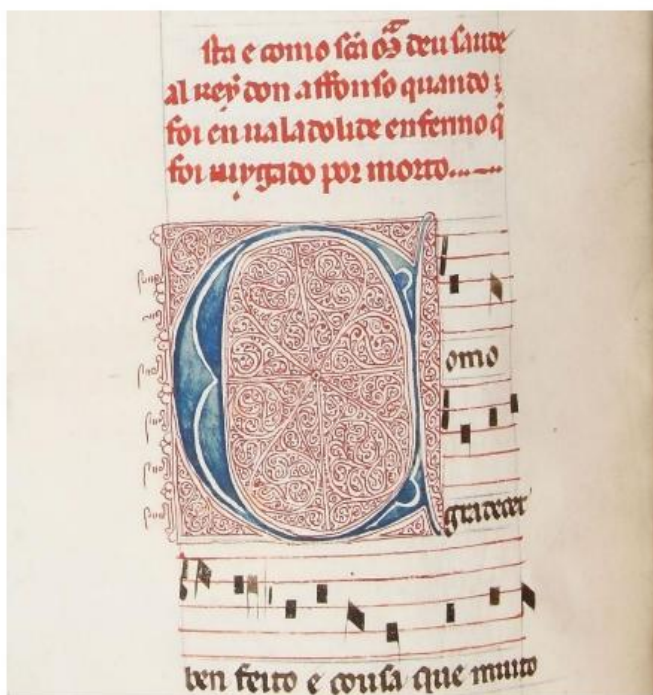 sta e como sc̃a mã deu saude
al rey don affonso quando
foi en ualadolide enfermo q̃
foi iuygado por morto
C
omo
gradecer
ben feito e cousa que muito